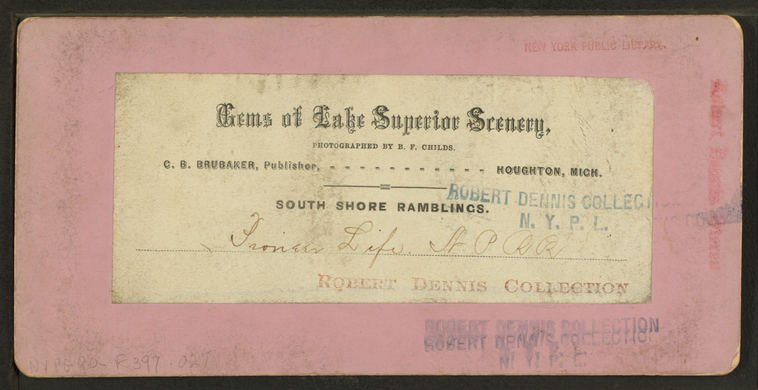 NEW YORK PUBLIC LIBRARY.
Gems of Lake Superior Scenery,
PHOTOGRAPHED BY B. F. CHILDS.
C. B. BRUBAKER, Publisher, - - - - - - - - - - - HOUGHTON, MICH.
ROBERT DENNIS COLLECTION
SOUTH SHORE RAMBLINGS.
N. Y. P. L.
Pioneer Life. N P RR
ROBERT DENNIS COLLECTION
ROBERT DENNIS COLLECTION
ROBERT DENNIS COLLECTION
N. Y. P. L.
Robert Dennis Collection
NYPG90-F397 .027